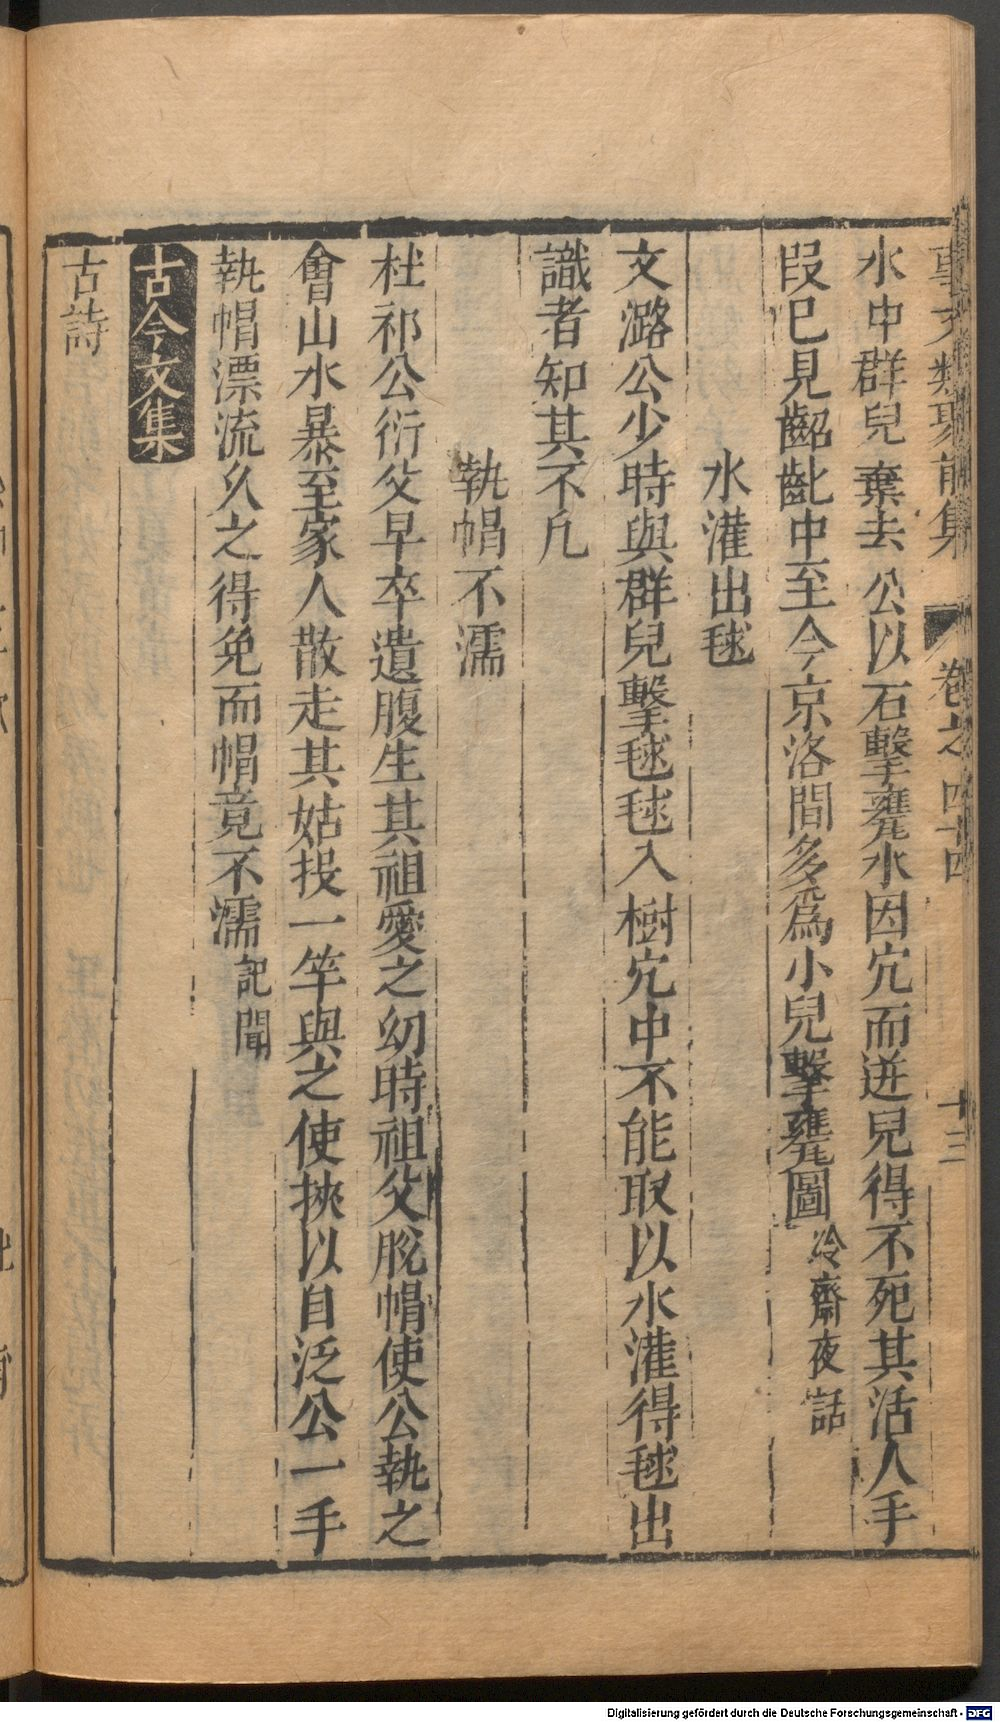 事文類聚前集 卷之四十四 十三
水中群兒棄去公以石擊甕水因穴而迸兒得不死其活人手
段已見齠齔中至今京洛間多爲小兒擊甕圖冷齋夜話
水灌出毬
文潞公少時與群兒擊毬毬入樹穴中不能取以水灌得毬出
識者知其不凡
執帽不濡
杜祁公衍父早卒遺腹生其祖愛之幼時祖父脫帽使公執之
會山水暴至家人散走其姑投一竿與之使挾以自泛公一手
執帽漂流久之得免而帽竟不濡記聞
古今文集
古詩
Digitalisierung gefördert durch die Deutsche Forschungsgemeinschaft - DFG